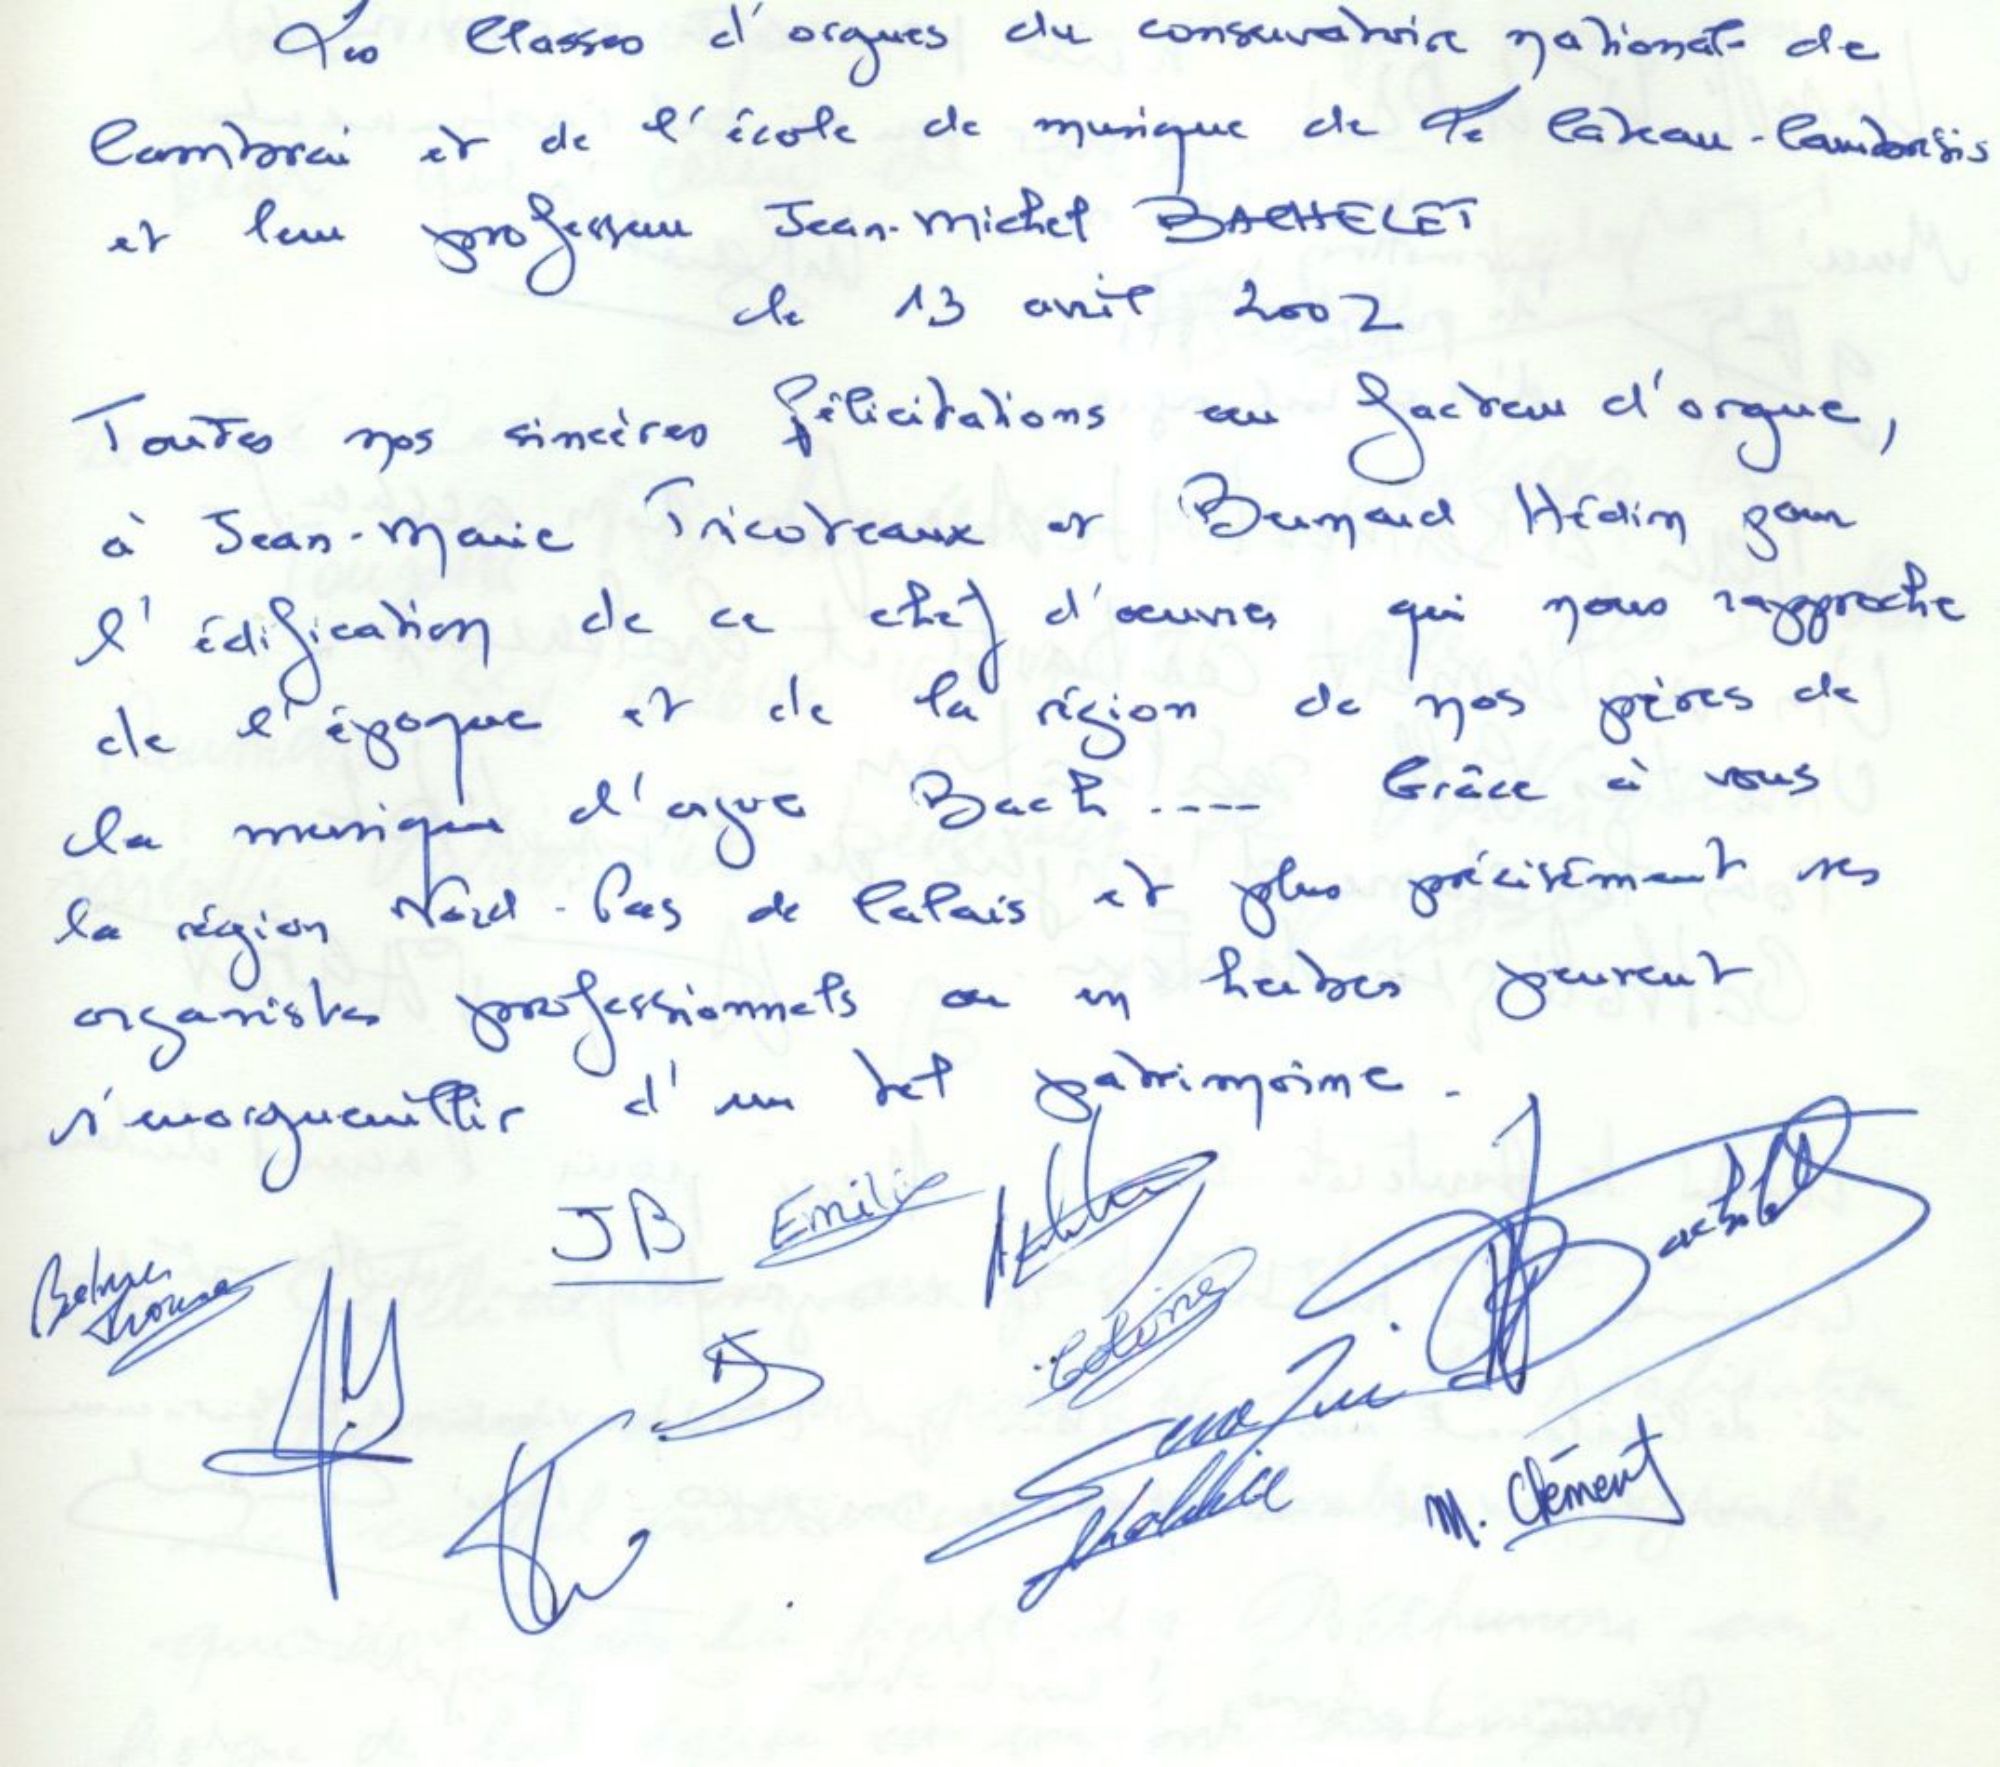 Les Classes d'orgues du conservatoire national de
Cambrai et de l'école de musique de Le Câteau-Cambrésis
et leur professeur Jean-Michel BACHELET
le 13 avril 2002
Toutes nos sincères félicitations au facteur d'orgue,
à Jean-Marie Tricoteaux et Bernard Hédin pour
l'édification de ce chef d'oeuvres qui nous rapproche
de l'époque et de la région de nos pères de
la musique d'orgue Bach .... Grâce à vous
la région Nord-Pas de Calais et plus précisément ses
organistes professionnels ou en herbes peuvent
s'enorgueuillir d'un tel patrimoine.
JB Emilie
Bachelet
Coline
M. Clément